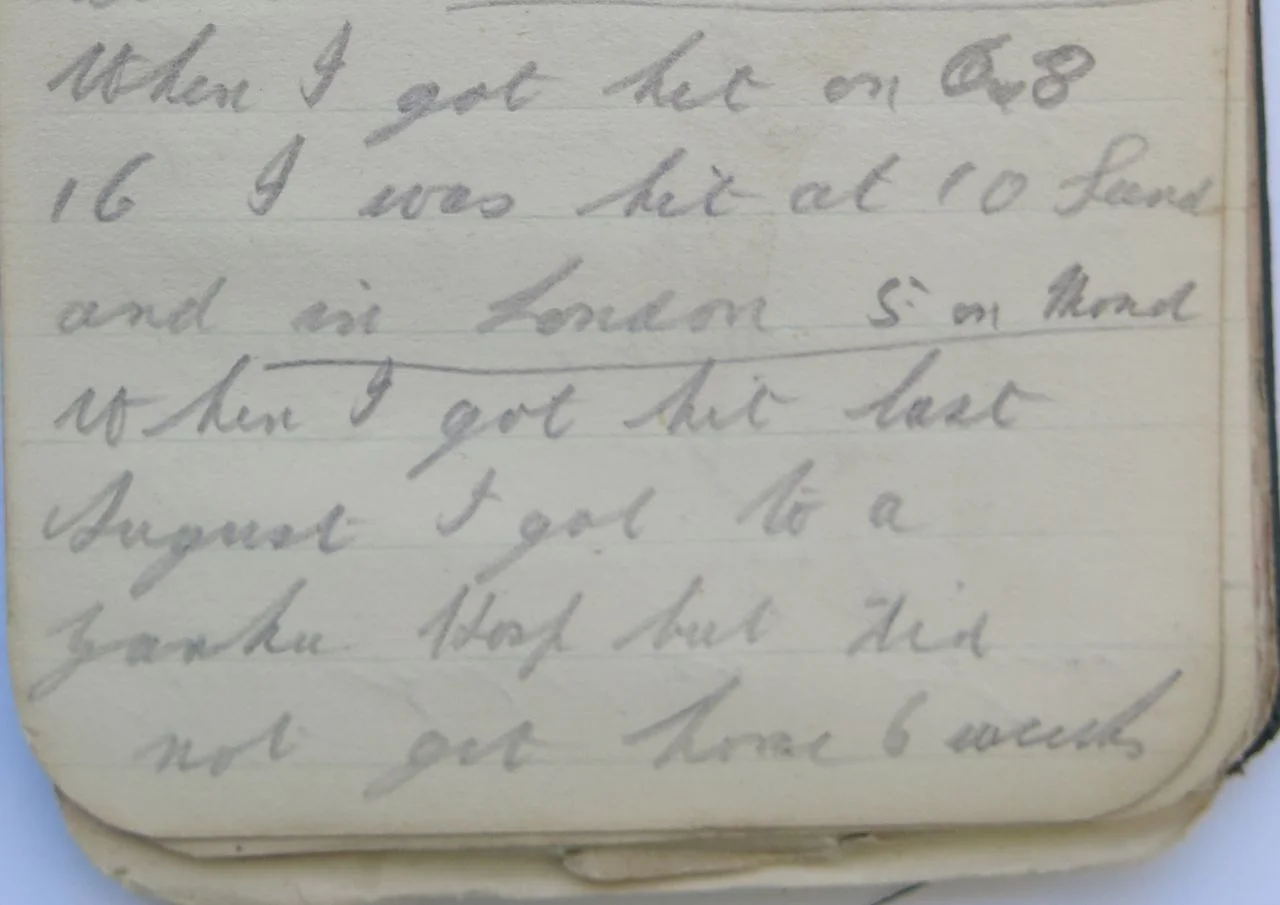 When I got hit on Oct 8
16 I was hit at 10 Sund
and in London 5 on Mond
When I got hit last
August I got to a
Yanke Hosp but did
not get home 6 weeks